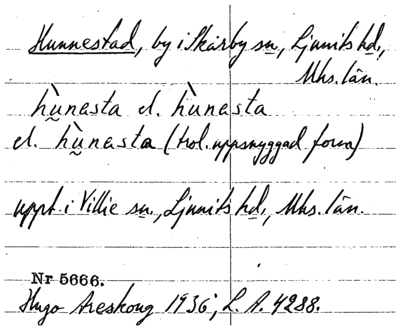 Hunnestad, by i Skårby sn, Ljunits hd,
Mhs. län.
hù̬nasta el. hùnasta
el. hù̬nasta (trol. uppsnyggad form)
uppt. i Villie sn., Ljunits hd., Mhs. län.
Nr 5666.
Hugo Areskoug 1936, L. A. 4288.